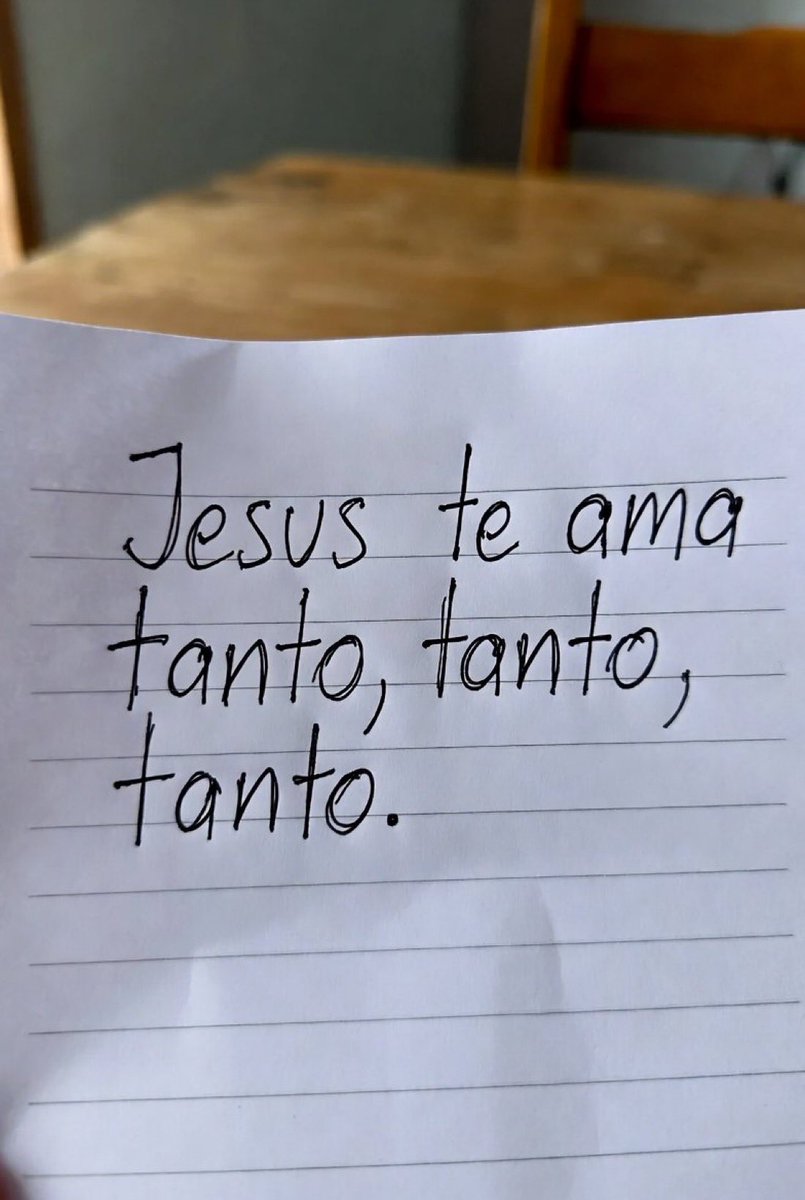 Jesus te ama
tanto, tanto,
tanto.